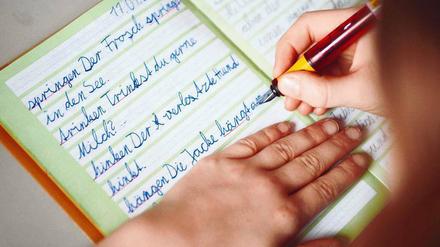 17.01
springen Der Frosch springt
in den See.
trinken Trinkst du gerne
Milch?
hinken Der verletzte Hund
hinkt.
hängen Die Jacke hängt